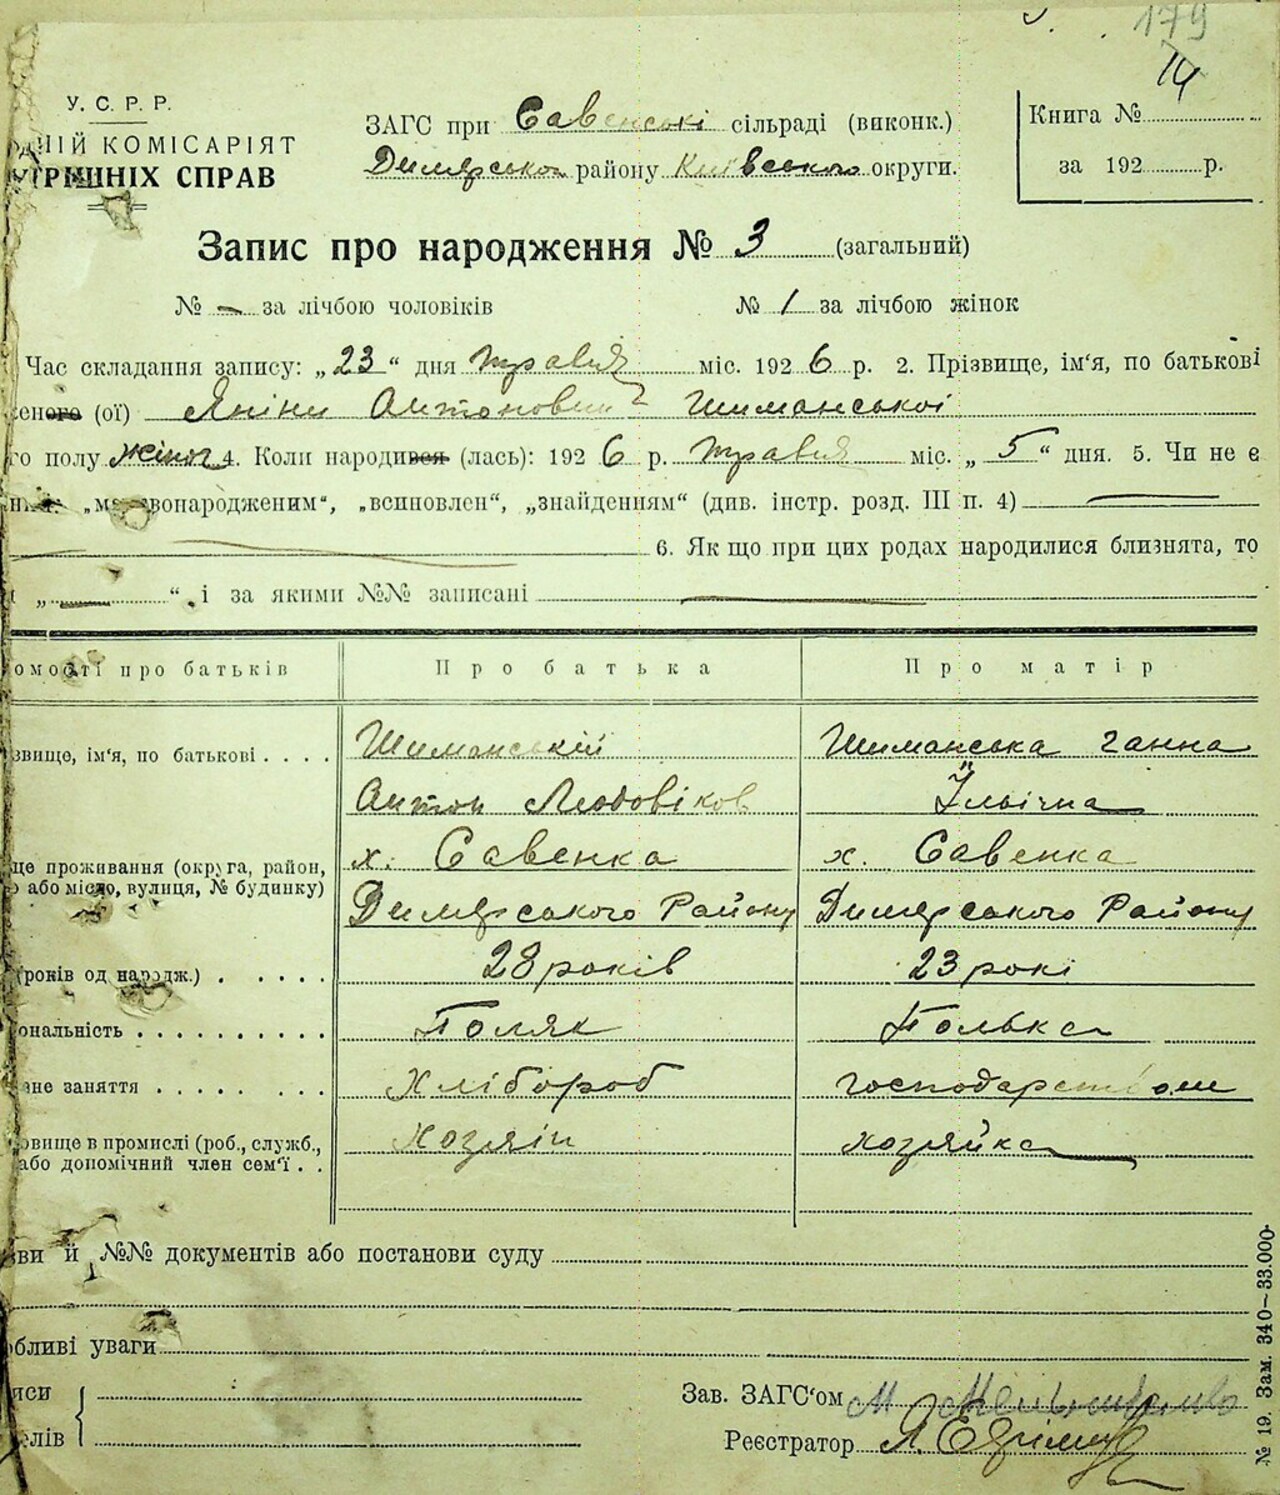 179
14
У. С. Р. Р.
ОДНІЙ КОМІСАРІЯТ
УТРІШНІХ СПРАВ
ЗАГС при Савенські сільраді (виконк.)
Димерського району Київського округи.
Книга №
за 192 р.
Запис про народження № 3 (загальний)
№ — за лічбою чоловіків № 1 за лічбою жінок
Час складання запису: „23“ дня травня міс. 1926 р. 2. Прізвище, ім'я, по батькові
женого (ої) Яніни Антоновни Шиманської
го полу жіноч 4. Коли народився (лась): 1926 р. травня міс. „5“ дня. 5. Чи не є
„мертвонародженим“, „всиновлен“, „знайденням“ (див. інстр. розд. III п. 4) —
6. Як що при цих родах народилися близнята, то
„—“ і за якими №№ записані —
омості про батьків Про батька Про матір
звище, ім'я, по батькові . . . . Шиманській Шиманська Ганна
Антон Людовіков Ільічна
ще проживання (округа, район, х. Савенка х. Савенка
о або місто, вулиця, № будинку)
Димерського Району Димерського Району
(років од народж.) . . . . . 28 років 23 рокі
ональність . . . . . . . . . . Поляк Полька
вне заняття . . . . . . . . Хлібороб господарством
овище в промислі (роб., служб., Хозяїн хозяйка
або допомічний член сем'ї . .
зви й №№ документів або постанови суду
обливі уваги
иси
елів
Зав. ЗАГС'ом М
Реєстратор Л.
№ 19. Зам. 340—33.000